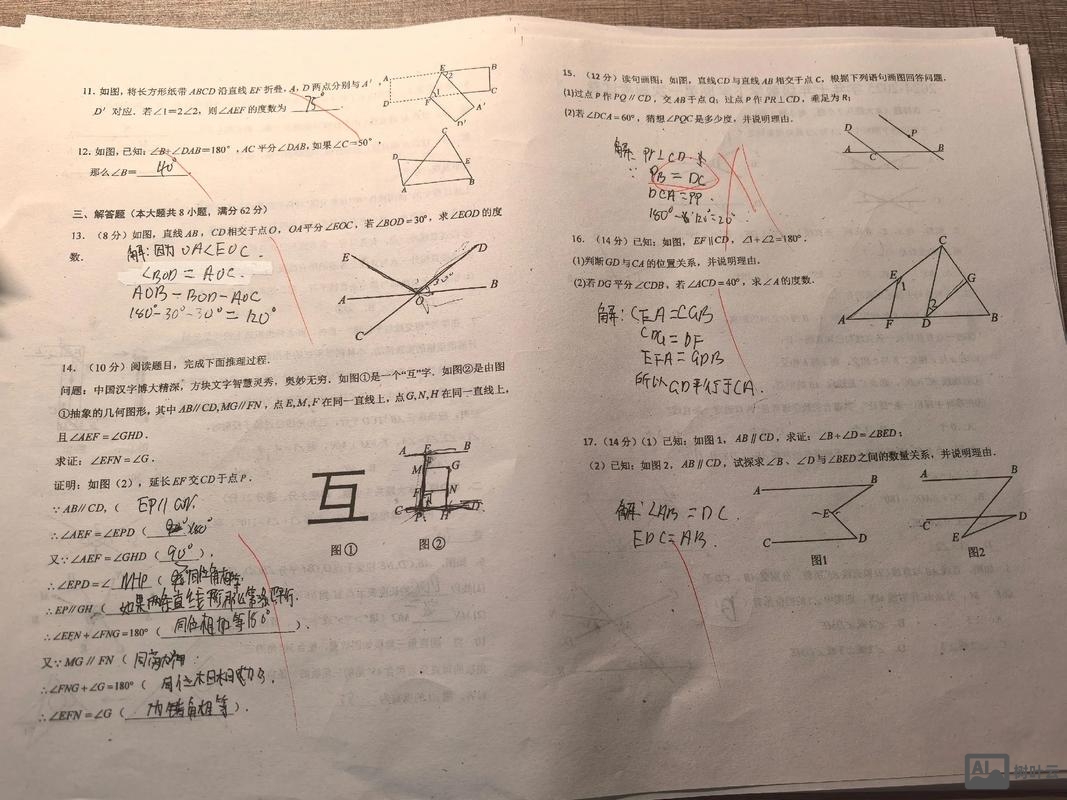 11. 如图，将长方形纸带 ABCD 沿直线 EF 折叠，A，D 两点分别与 A'，
D' 对应．若∠1=2∠2，则∠AEF 的度数为 75°．
A E B 2 D F 1 C A' D'
12. 如图，已知：∠B+∠DAB=180°，AC 平分∠DAB，如果∠C=50°，
那么∠B= 40°．
C D E A B
三、解答题（本大题共 8 小题，满分 62 分）
13.（8 分）如图，直线 AB，CD 相交于点 O，OA 平分∠EOC，若∠BOD=30°，求∠EOD 的度
数．
解：因为 OA∠EOC.
∠BOD = AOC.
AOB = BOD - AOC
180°-30°-30°= 120°
E D A O B C
14.（10 分）阅读题目，完成下面推理过程．
问题：中国汉字博大精深，方块文字智慧灵秀，奥妙无穷．如图①是一个“互”字．如图②是由图
①抽象的几何图形，其中 AB∥CD,MG∥FN，点 E,M,F 在同一直线上，点 G,N,H 在同一直线上，
且∠AEF=∠GHD．
求证：∠EFN=∠G．
证明：如图（2），延长 EF 交 CD 于点 P．
∵AB∥CD,（ EP//
∴∠AEF=∠EPD（ 180°）
又∵∠AEF=∠GHD（ 90° ），
∴∠EPD=∠ MHP （ 同位角相等
∴EP∥GH（ 如果两条直线
∴∠EFN+∠FNG=180°（ 同位相加等180° ）．
又∵MG∥FN（
∴∠FNG+∠G=180°（
∴∠EFN=∠G（ 内错角相等 ）．
互
图①
A E B M G F N C P H D
图②
15.（12 分）读句画图：如图，直线 CD 与直线 AB 相交于点 C，根据下列语句画图回答问题．
(1)过点 P 作 PQ∥CD，交 AB 于点 Q；过点 P 作 PR⊥CD，垂足为 R；
(2)若∠DCA=60°，猜想∠PQC 是多少度，并说明理由．
解：PR⊥CD
∵ PB = DC
DCA = PP.
=20°
D P A C B
16.（14 分）已知：如图，EF∥CD，∠1+∠2=180°．
(1)判断 GD 与 CA 的位置关系，并说明理由．
(2)若 DG 平分∠CDB，若∠ACD=40°，求∠A 的度数．
解：CEA = CGB
CDG = DF
EFA = GDB
所以 GD平行于CA.
C E 1 G 2 A F D B
17.（14 分）(1) 已知：如图 1，AB∥CD，求证：∠B+∠D=∠BED；
（2）已知：如图 2，AB∥CD，试探求∠B、∠D 与∠BED 之间的数量关系，并说明理由．
解：∠AB = DC.
EDC = AB.
A B E C D
图1
A B C D E
图2
AI 树叶云